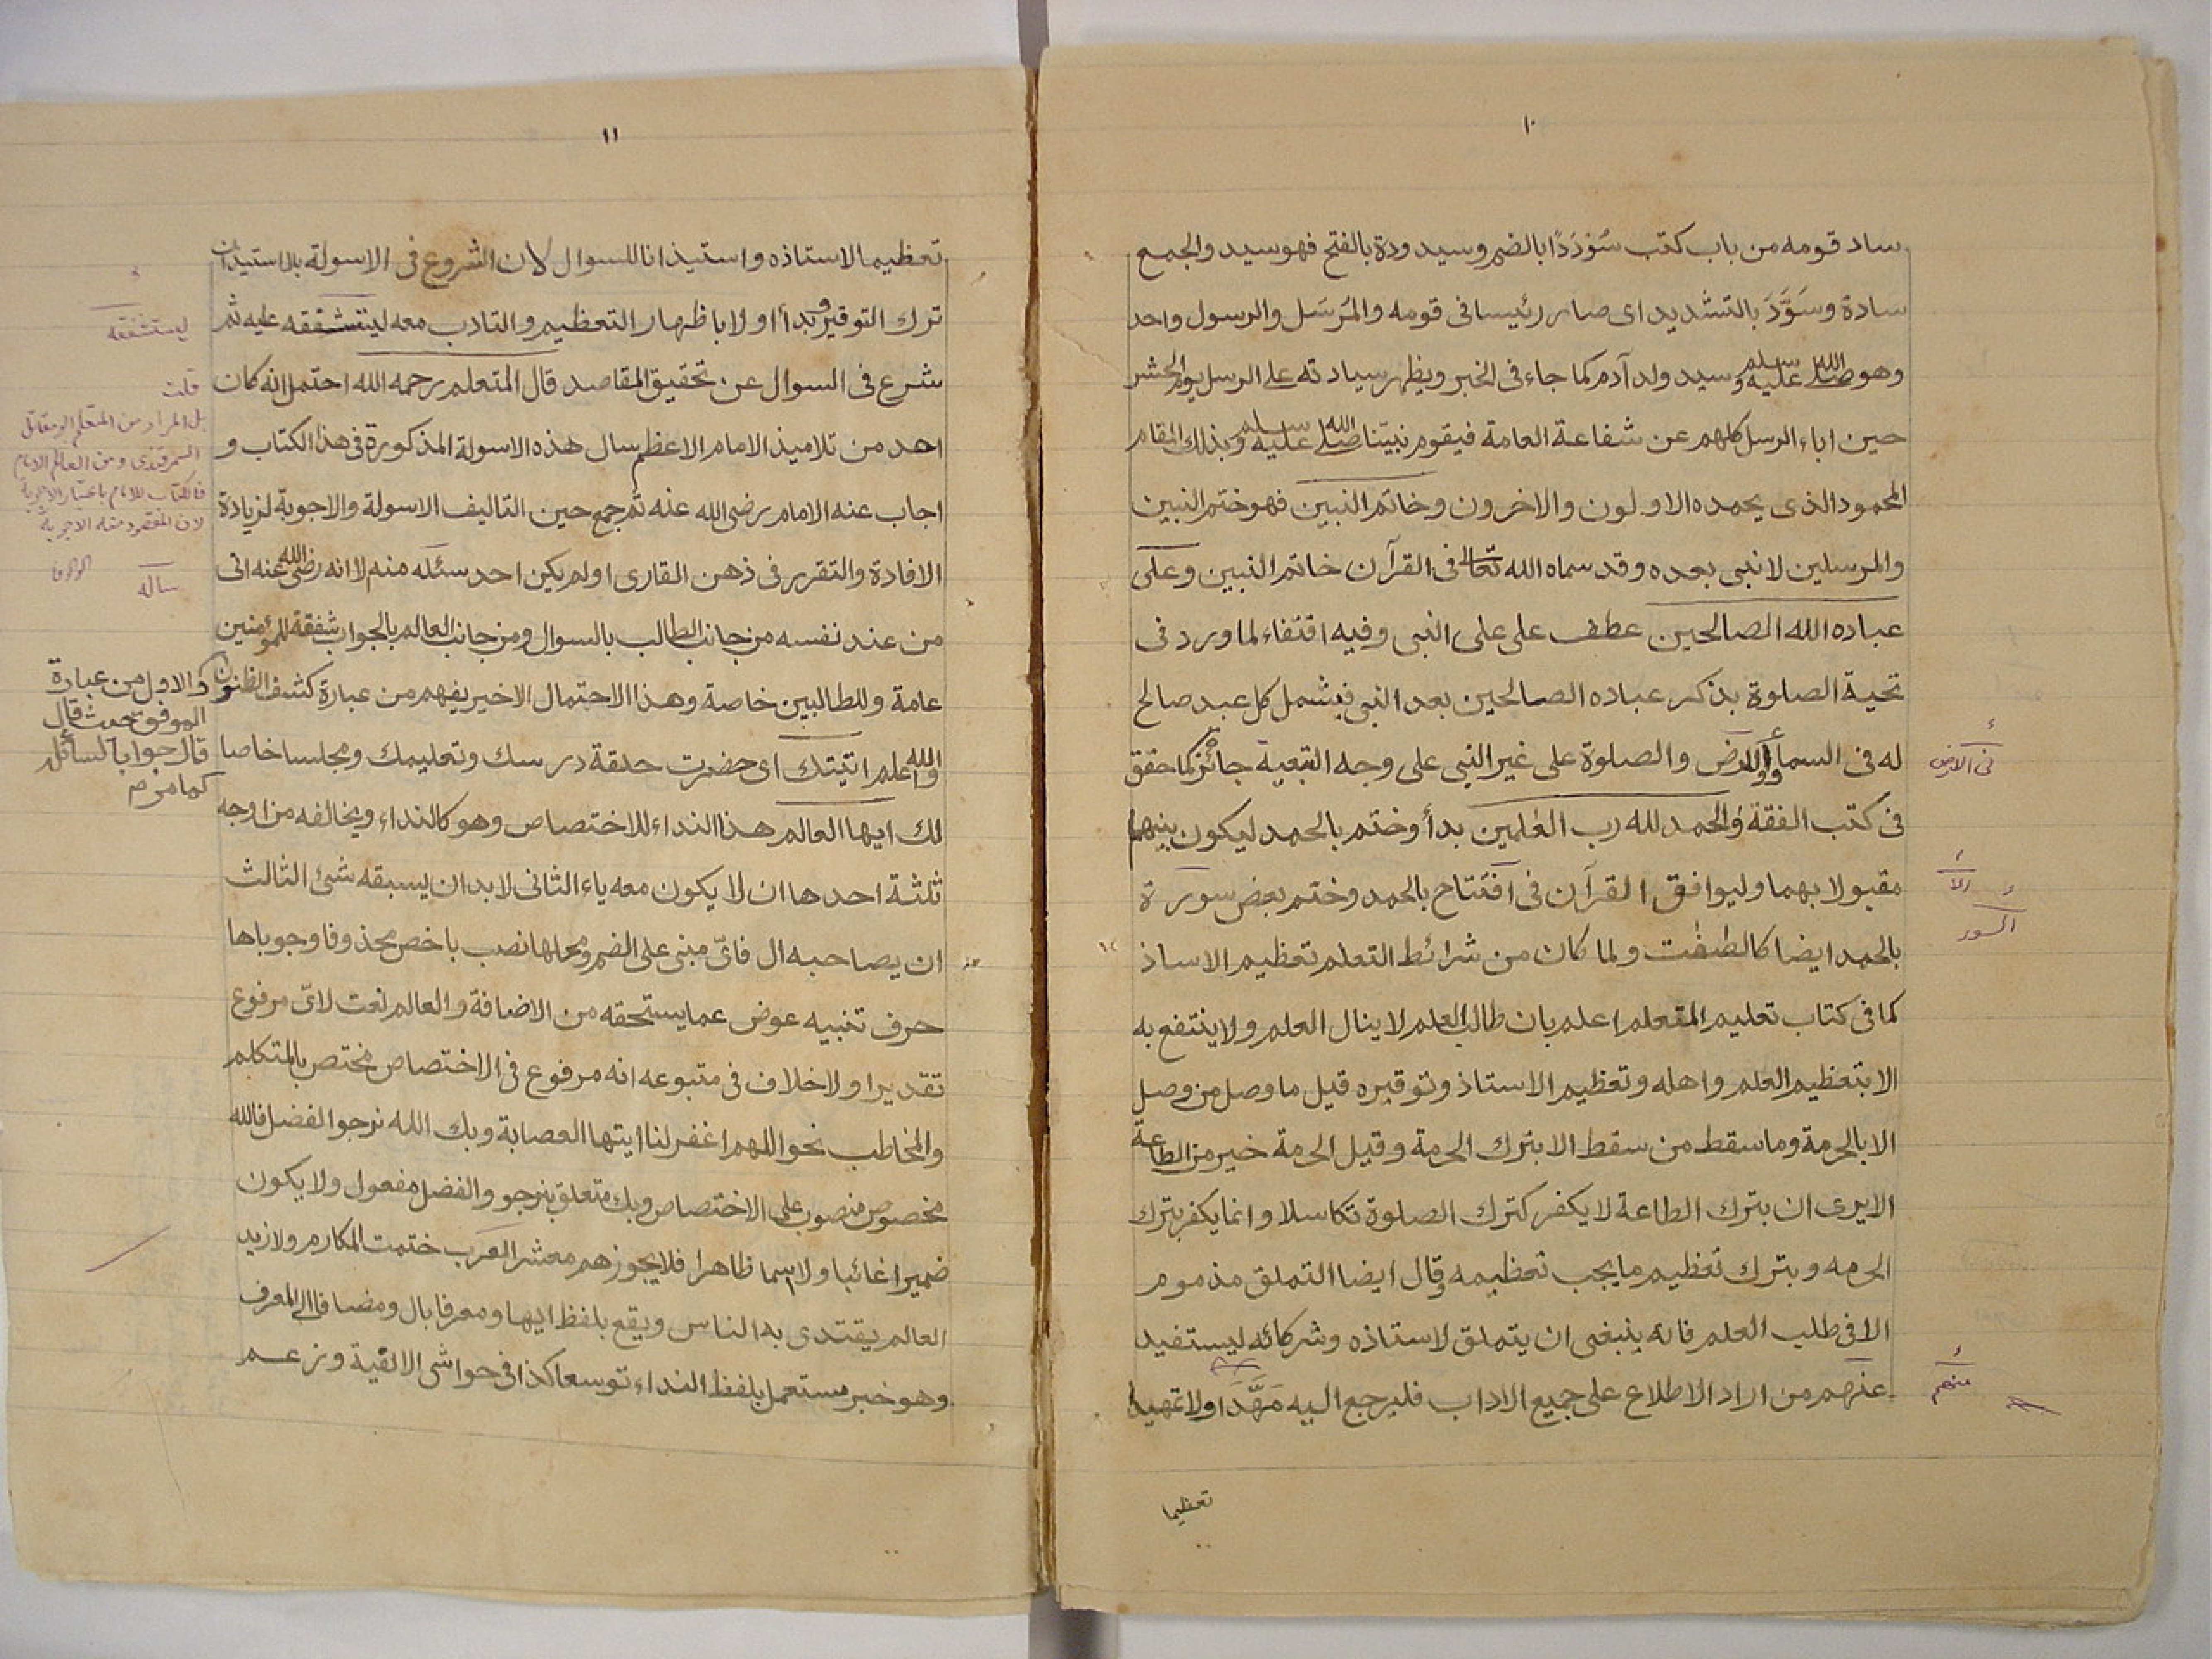 ١٠
ساد قومه من باب كتب سُوْدَدًا بالضم وسيد ودة بالفتح فهو سيد والجمع
سادة وسَوَّدَ بالتشديد اى صار رئيسا فى قومه والمُرسَل والرسول واحد
وهو صلى الله عليه وسلم سيد ولد آدم كما جاء فى الخبر ويظهر سيادته على الرسل يوم الحشر
حين اباء الرسل كلهم عن شفاعة العامة فيقوم نبيّنا صلى الله عليه وسلم وبذلك المقام
المحمود الذى يحمده الاولون والاخرون وخاتم النبين فهو ختم النبين
والمرسلين لا نبى بعده وقد سماه الله تعالى فى القرآن خاتم النبين وعلى
عباده الله الصالحين عطف على على النبى وفيه اقتفاء لما ورد فى
تحية الصلوة بذكر عباده الصالحين بعد النبى فيشمل كل عبد صالح
له فى السماء والارض والصلوة على غير النبى على وجه التبعية جائز كما حقق
فى الارض
فى كتب الفقة والحمد لله رب العٰلمين بدأ وختم بالحمد ليكون بينهما
مقبولا بهما وليوافق القرآن فى افتتاح بالحمد وختم بعض سورة
السور
بالحمد ايضا كالصٰفٰت ولما كان من شرائط التعلم تعظيم الاساذ
كما فى كتاب تعليم المتعلم اعلم بان طالب العلم لا ينال العلم ولا ينتفع به
الا بتعظيم العلم واهله وتعظيم الاستاذ وتوقيره قيل ما وصل من وصل
الا بالحرمة وما سقط من سقط الا بترك الحرمة وقيل الحرمة خير من الطاعة
الا يرى ان بترك الطاعة لا يكفر كترك الصلوة تكاسلا وانما يكفر بترك
الحرمه وبترك تعظيم ما يجب تعظيمه وقال ايضا التملق مذموم
الا فى طلب العلم فانه ينبغى ان يتملق لاستاذه وشركائه ليستفيد
عنهم من اراد الاطلاع على جميع الاداب فليرجع اليه مَهَّدَ اولا تمهيدا
منهم
تعظيما
١١
تعظيما لاستاذه واستيذانا للسوال لان الشروع فى الاسولة بلا استيذان
ترك التوقير وبدأ اولا باظهار التعظيم والتادب معه ليتشفقه عليه ثم
ليستشفقه
شرع فى السوال عن تحقيق المقاصد قال المتعلم رحمه الله احتمل انه كان
احد من تلاميذ الامام الاعظم سال هذه الاسولة المذكورة فى هذا الكتاب و
اجاب عنه الامام رضى الله عنه ثم جمع حين التاليف الاسولة والاجوبة لزيادة
الافادة والتقرير فى ذهن القارى او لم يكن احد سئله منه لا انه رضى الله عنه اتى
ساله
قلت
بل المراد من المتعلم ابو مقاتل
السمرقندى ومن العالم الامام
فالكتاب للامام باعتبار الاجوبة
لان المقصود منه الاجوبة
من عند نفسه من جانب الطالب بالسوال ومن جانب العالم بالجواب شفقة للمؤمنين
عامة وللطالبين خاصة وهذا الاحتمال الاخير يفهم من عبارة كشف الظنون
والاول من عبارة
الموفق حيث قال
قال جوابا لسائل
كما مر م
والله اعلم اتيتك اى حضرت حلقة درسك وتعليمك ومجلسا خاصا
لك ايها العالم هذا النداء للاختصاص وهو كالنداء ويخالفه من اوجه
ثلثة احدها ان لا يكون معه ياء الثانى لا بد ان يسبقه شئ الثالث
ان يصاحبه ال فاىّ مبنى على الضم ومحلها نصب باخص محذوفا وجوباها
حرف تنبيه عوض عما يستحقه من الاضافة والعالم نعت لاىّ مرفوع
تقديرا ولا خلاف فى متبوعه انه مرفوع فى الاختصاص مختص بالمتكلم
والمخاطب نحو اللهم اغفر لنا ايتها العصابة وبك الله نرجو الفضل فالله
مخصوص منصوب على الاختصاص وبك متعلق بنرجو والفضل مفعول ولا يكون
ضميرا غائبا ولا اسما ظاهرا فلا يجوز هم معشر العرب ختمت المكارم ولا زيد
العالم يقتدى به الناس ويقع بلفظ ايها ومعرفا بال ومضافا الى المعرف
وهو خبر مستعمل بلفظ النداء توسعا كذا فى حواشى الالفية وزعم